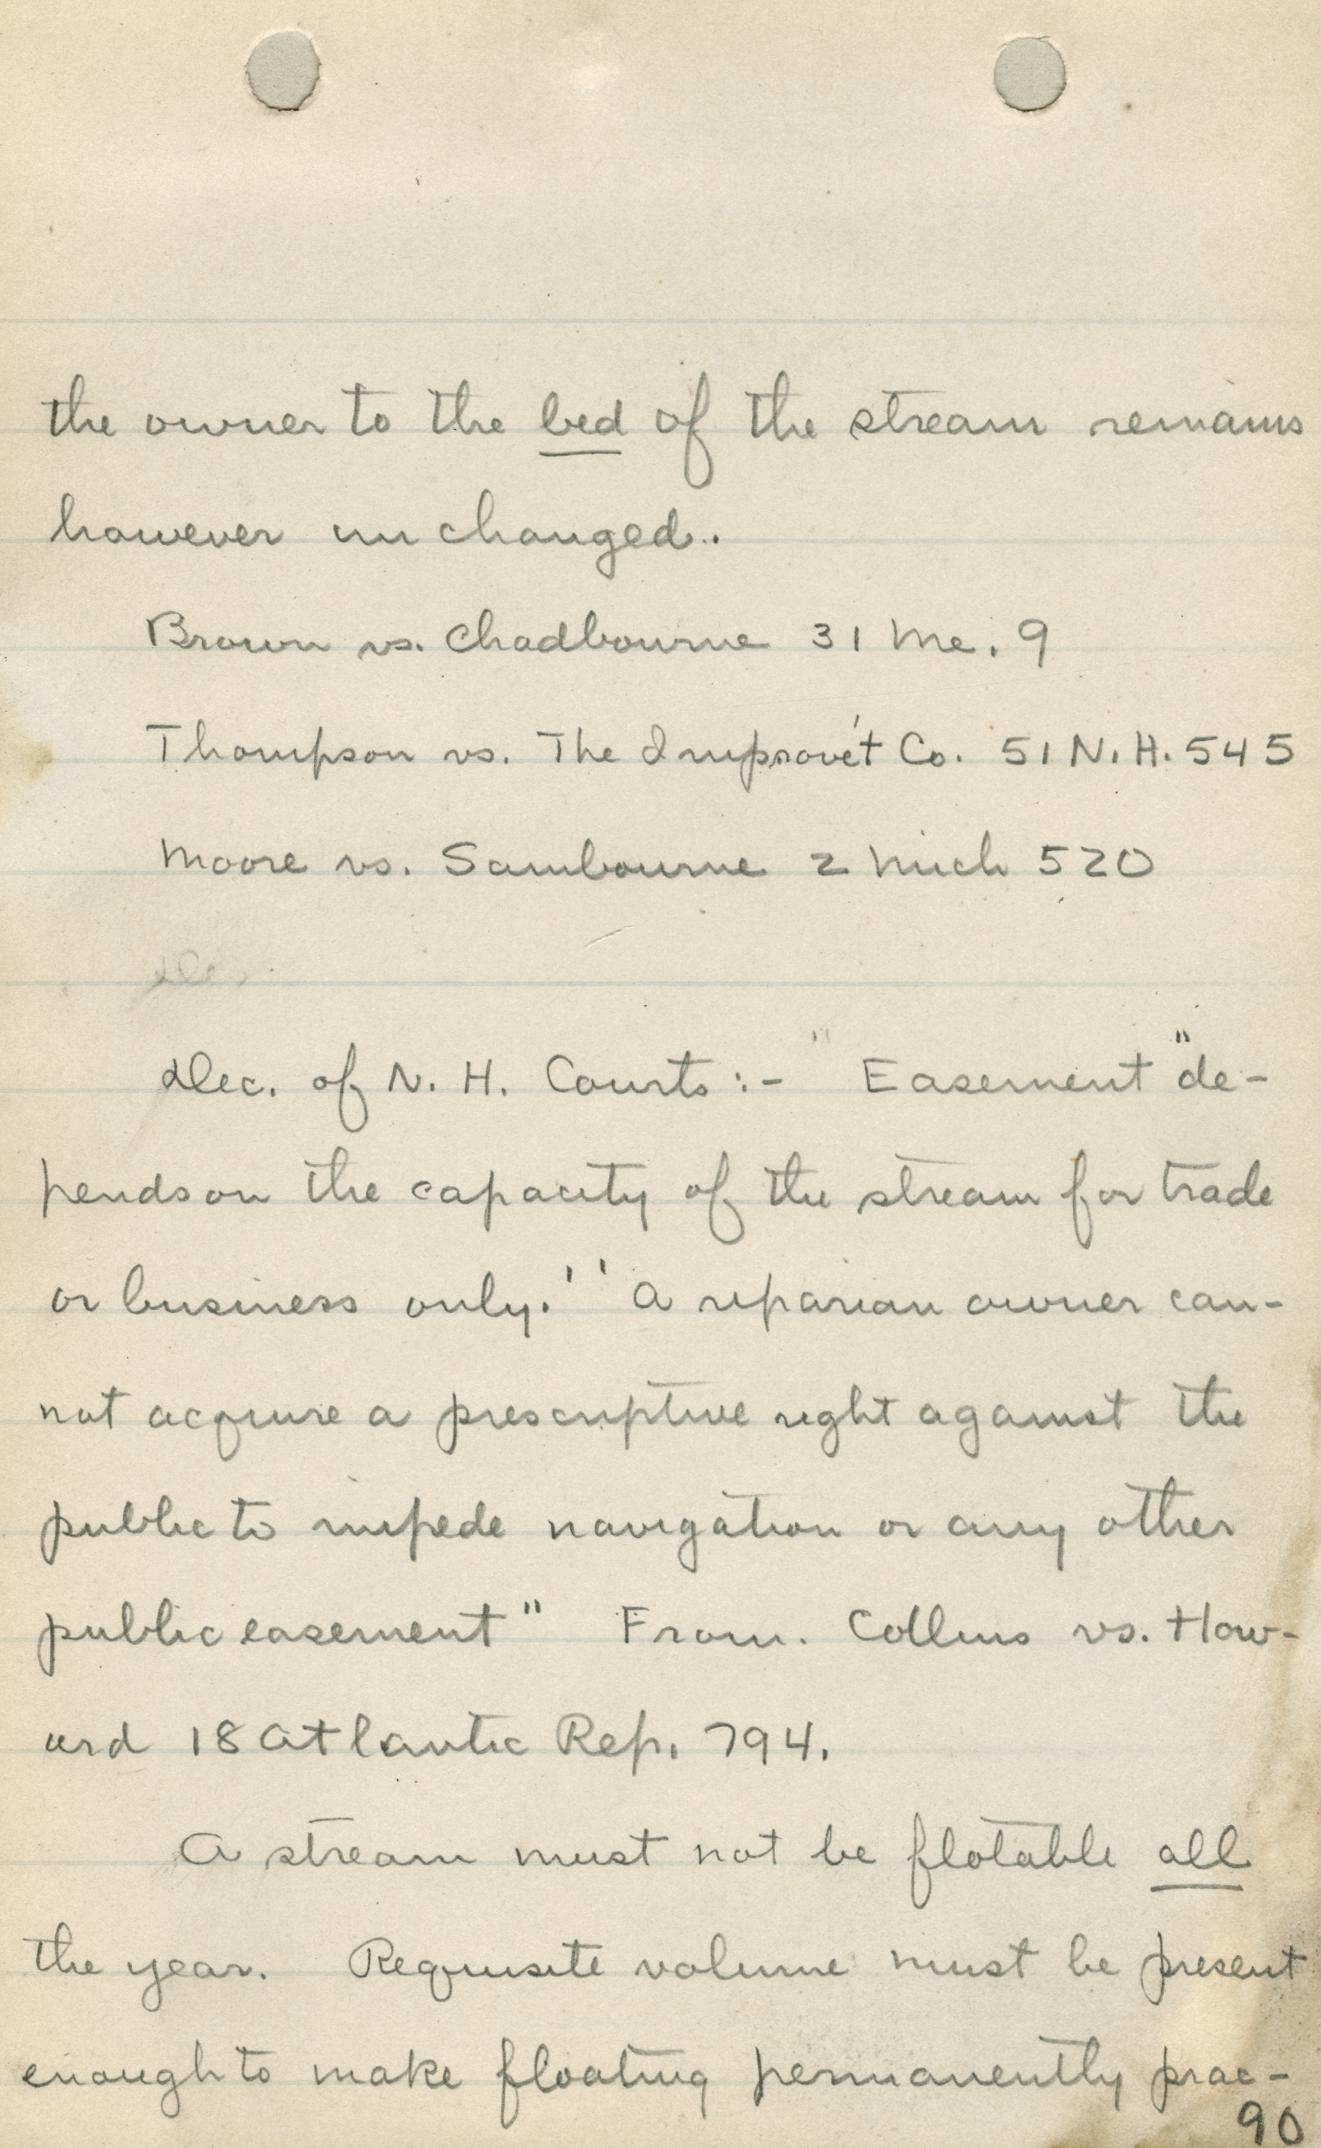 the owner to the bed of the stream remains
however unchanged.
Brown vs. Chadbourne 31 Me. 9
Thompson vs. The Improve't Co. 51 N.H. 545
Moore vs. Sanbourne 2 Mich 520
Dec. of N. H. Courts :- " Easement" de-
pends on the capacity of the stream for trade
or business only." A riparian owner can-
not acquire a prescriptive right against the
public to impede navigation or any other
public easement" From. Collins vs. How-
ard 18 Atlantic Rep. 794.
A stream must not be flotable all
the year. Requisite volume must be present
enough to make floating permanently prac-
90